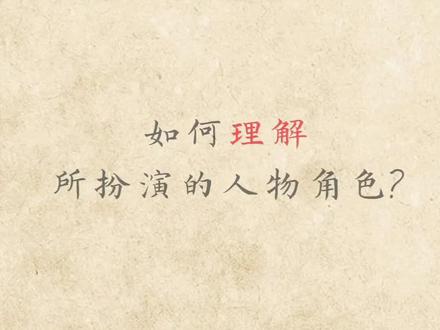 如何理解
所扮演的人物角色?